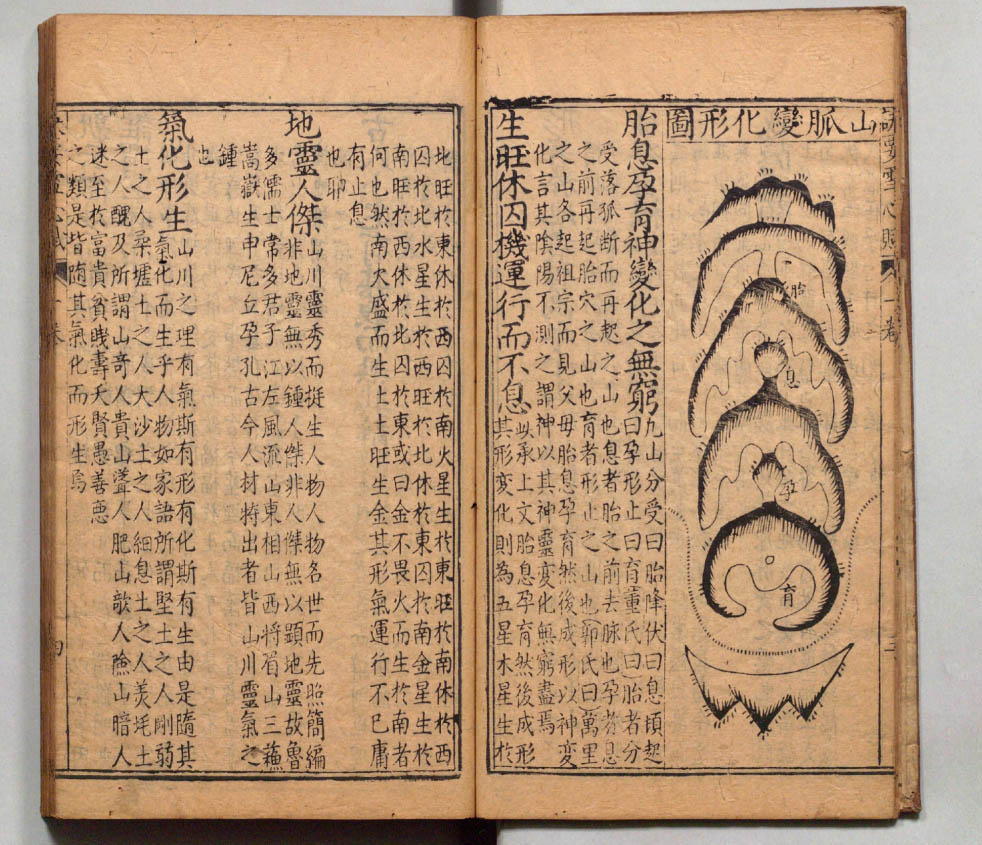 山脈變化形圖
胎
息
孕
育
胎息孕育神變化之無窮
九山分受曰胎降伏曰息頃起
曰孕形止曰育董氏曰胎者分
受落孤断而再起之山也息者胎之前去脉也孕者息
之前再起胎穴之山也育者形止之山也郭氏曰萬里
之山各起祖宗而見父母胎息孕育然後成形以神変
化言其陰陽不測之謂神以其神靈変化無窮盡焉
生旺休囚機運行而不息
此承上文胎息孕育然後成形
其形変化則為五星木星生於
北旺於東休於西囚於南火星生於東旺於南休於西
囚於北水星生於西旺於北休於東囚於南金星生於
南旺於西休於北囚於東或曰金不畏火而生於南者
何也然南火盛而生土土旺生金其形氣運行不已庸
有止息
也耶
地靈人傑
山川靈秀而挺生人物人物名世而先照簡編
非地靈無以鍾人傑非人傑無以顕地靈故魯
多儒士常多君子江左風流山東相山西将眉山三蘓
嵩嶽生申尼丘孕孔古今人材特出者皆山川靈氣之
鍾
也
氣化形生
山川之理有氣斯有形有化斯有生由是隨其
氣化而生乎人物如家語所謂堅土之人剛弱
土之人柔壚土之人大沙土之人細息土之人羙土
之人醜及所謂山竒人貴山聳人肥山欹人險山暗人
迷至於富貴貧賤壽夭賢愚善悪
之類是皆隨其氣化而形生焉